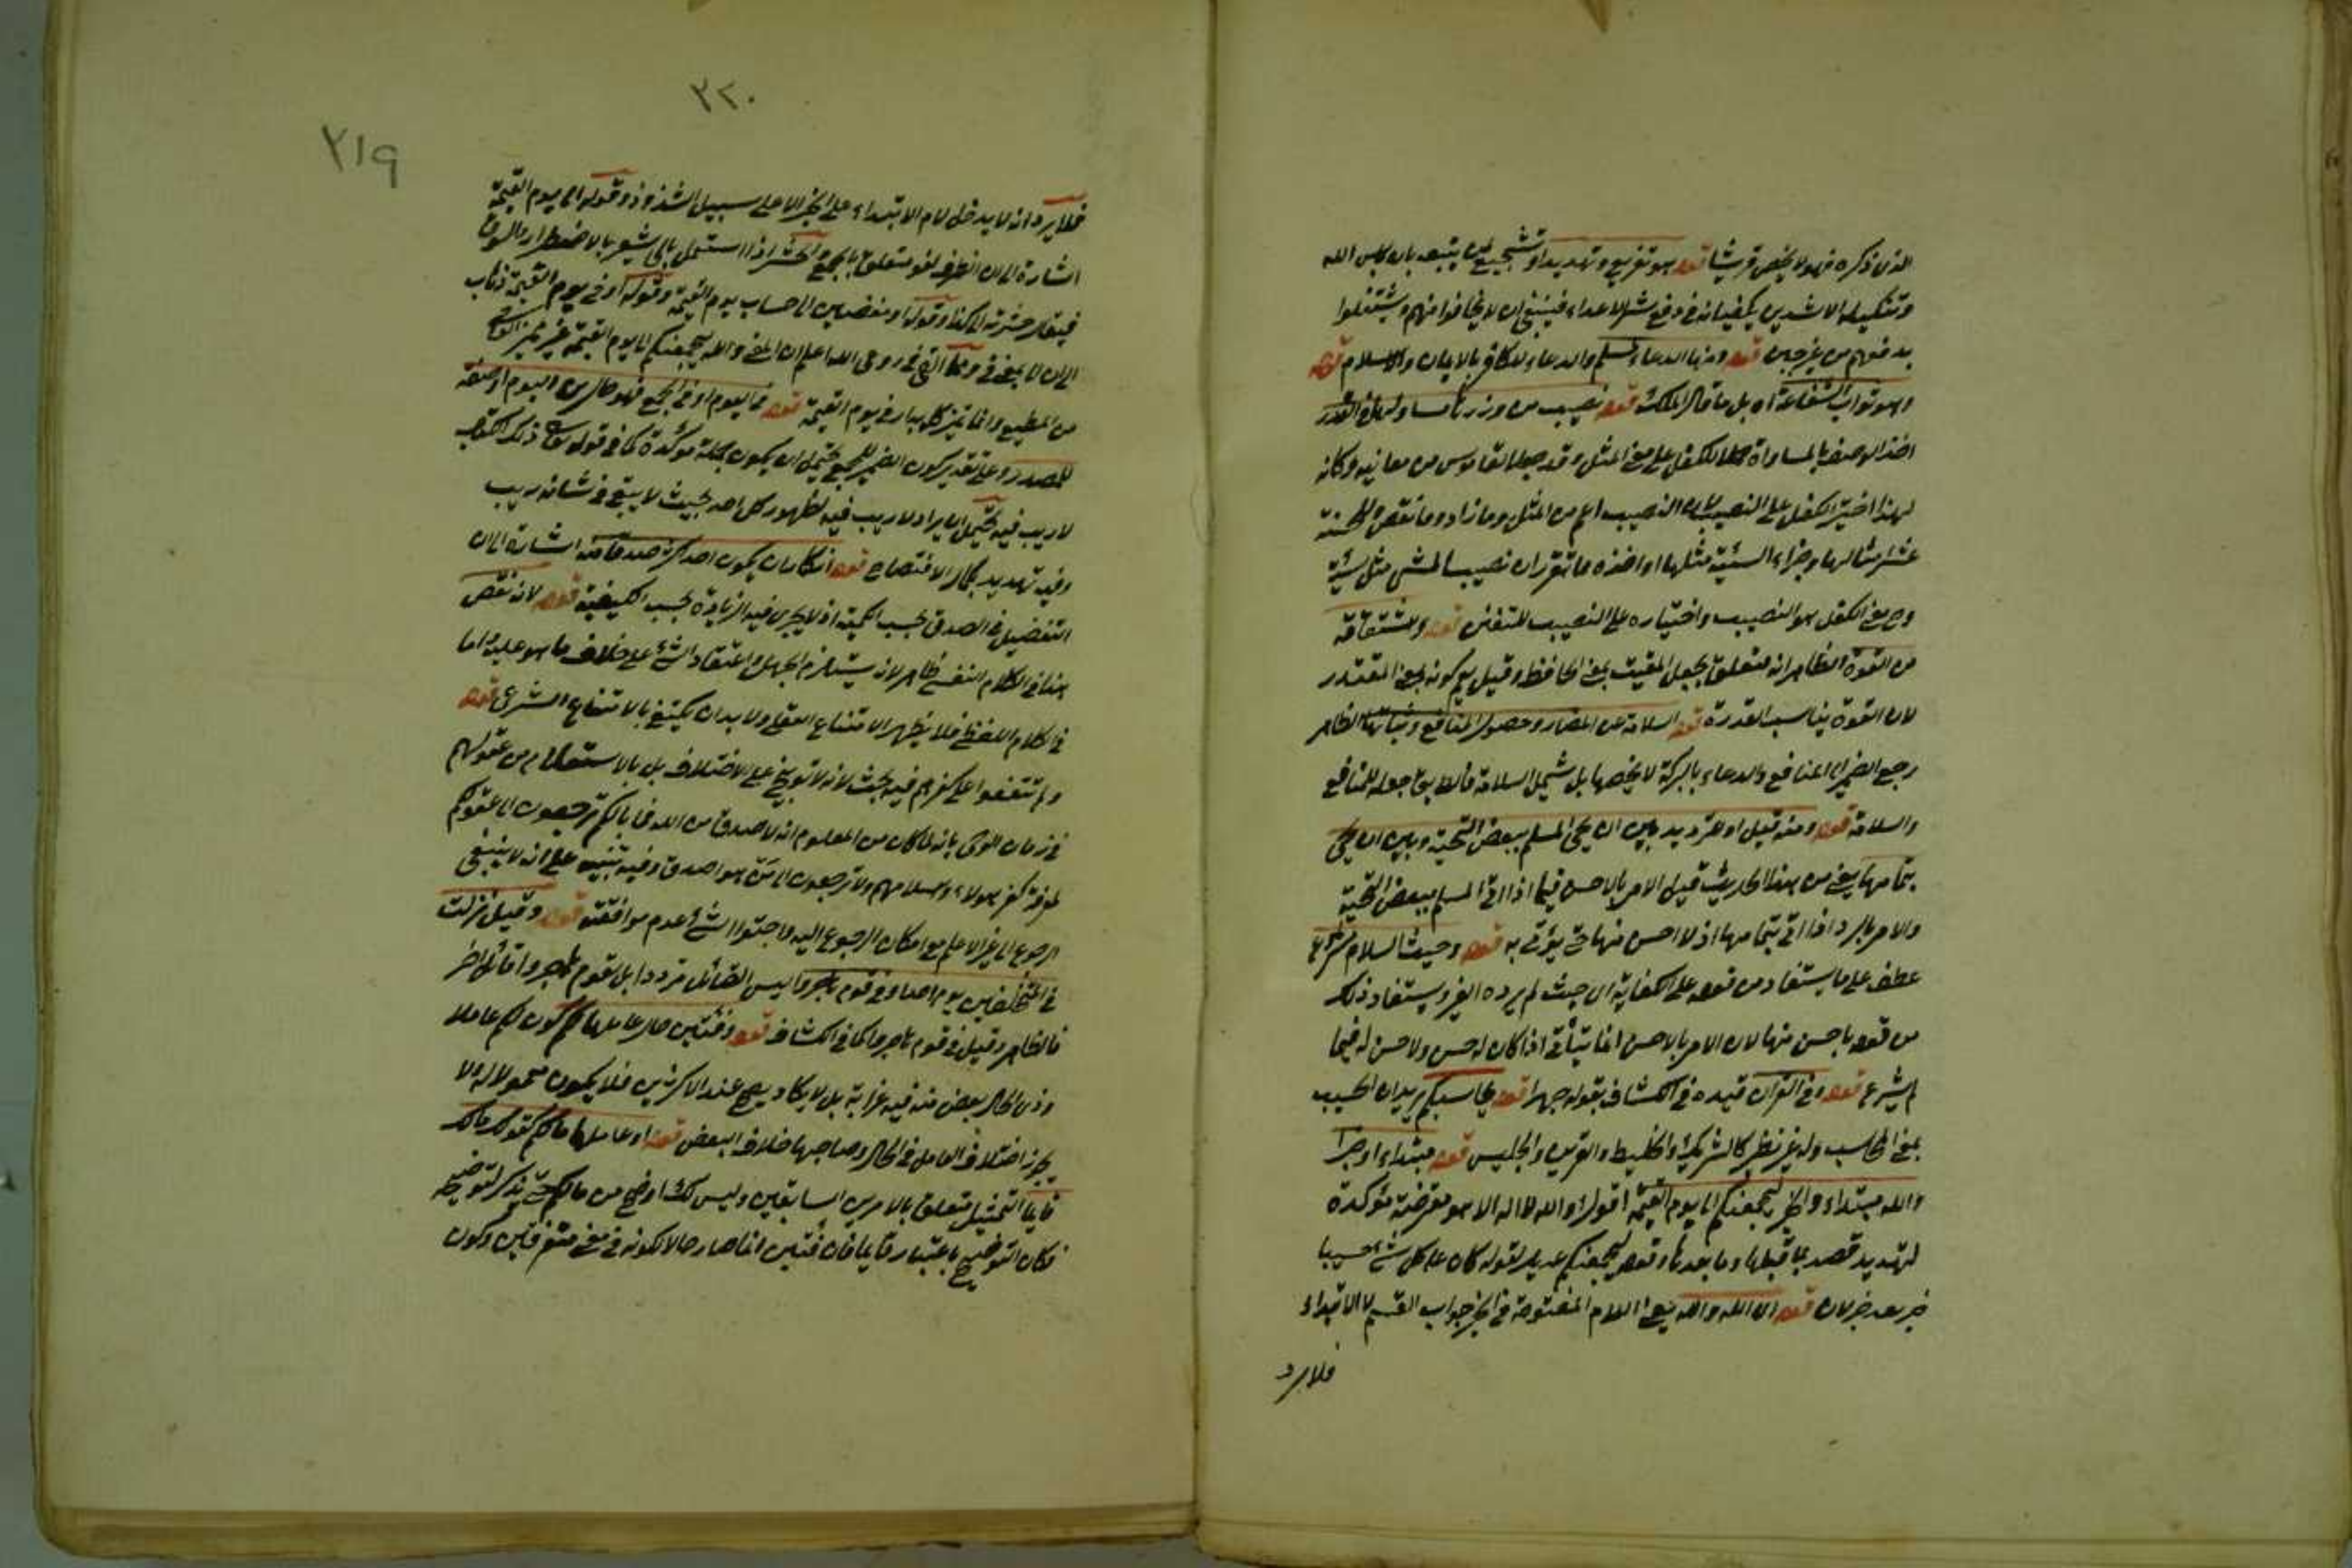 الذي ذكره فهو لا يخص قريشا قوله هو تقريع وتهديد او تشجيع لمن يتبعه بان باس الله
وتنكيله الاشدين يكفيانه في دفع شر الاعداء فينبغي ان لا يخافوا منهم ويشتغلوا
بدفعهم من غير جبن قوله ومنها الدعاء لمسلم والدعاء للكافر بالايمان والاسلام قوله
وهو ثواب الشفاعة اه بل ما قال الملك قوله نصيب من وزرها مساو لها في القدر
اخذ الوصف بالمساواة الكفل على معنى المثل وقد جعله القاموس من معانيه وكانه
لهذا اختير الكفل على النصيب لان النصيب اعم من المثل وما زاد وما نقص والحسنة
عشر مثالها وجزاء السيئة مثلها او اخذه مما تقرر ان نصيب المسئ مثل سيئة
وح مع الكفل هو النصيب واختياره على النصيب للتفنن قوله واشتقاقه
من القوة الظاهر انه متعلق بجعل المقيت بمعنى الحافظ وقيل يعم كونه بمعنى المقتدر
لان القوة يناسب القدرة قوله السلامة عن المضار وحصول المنافع وثباتها الظاهر
رجع الضمير الى المنافع والدعاء بالبركة لا يخصها بل يشمل السلامة فالطريق جعله للمنافع
والسلامة قوله ومنه قيل او للترديد بين ان يحيي المسلم ببعض التحية وبين ان يحيي
بتمامها يعني من هذا الحديث قيل الامر بالاحسن فيما اذا اتى المسلم ببعض التحية
والامر بالرد اذا اتى بتمامها اذ لا احسن منها حتى يؤتى به قوله وحيث السلام مشروع
عطف على ما يستفاد من قوله على الكفاية اي حيث لم يرده الغير ويستفاد ذلك
من قوله باحسن منها لان الامر بالاحسن انما يتأتى اذا كان له حسن ولا حسن له فيما
لم يشرع قوله وفي القران قيده في الكشاف بقوله جهرا قوله يحاسبكم يريد ان الحسيب
بمعنى المحاسب وله غير نظير كالشريك والخليط والقرين والجليس قوله مبتداء او خبر
والله مبتداء والخبر ليجمعنكم الى يوم القيمة اقول او الله لا اله الا هو معترضة مؤكدة
لتهديد قصد بما قبلها وما بعدها وقوله ليجمعنكم عديل لقوله كان على كل شئ حسيبا
خبر بعد خبر لان قوله اي الله والله يعني اللام المفتوحة في الخبر جواب القسم لا الابتداء
فلا يرد
٢٢٠
٢١٩
فلا يرد انه لا يدخل لام الابتداء على الخبر الا على سبيل الشذوذ وقوله الى يوم القيمة
اشارة الى ان الظرف لغو متعلق بالجمع الحشر اذا استعمل بالى يشعر بالاضطرار والسوق
فيقال حشرته الى كذا وقوله او مفضين الى حساب يوم القيمة وقوله او في يوم القيمة ذهاب
الى ان الى بمعنى في الله اعلم ان المعنى والله ليجمعنكم الى يوم القيمة غير مميز
من المطيع وانما تميز كل بدار في يوم القيمة قوله في اليوم او في الجمع فهو حال من اليوم او صفة
للمصدر وعلى تقدير كون الضمير للجمع يحتمل ان يكون جملة مؤكدة كما في قوله تعالى ذلك الكتاب
لا ريب فيه يحتمل ان يراد لا ريب فيه لظهور كل احد بحيث لا يبقى في شانه ريب
وفيه تهديد بكمال الافتضاح قوله انكار ان يكون احد اكثر صدقا منه اشارة الى ان
التفضيل في الصدق بحسب الكمية اذ لا يجري فيه الزيادة بحسب الكيفية قوله لانه نقص
هذا في الكلام النفسي ظاهر لانه يستلزم الجهل واعتقاد الشئ على خلاف ما هو عليه واما
في الكلام اللفظي فلا يظهر الامتناع العقلي ولا بد ان يكتفى بالامتناع الشرعي قوله
ولم تتفقوا على كفرهم فيه بحث لانه لا توبيخ على الاختلاف بل بالاستعلام من عقولهم
في زمان الوحي بانه لما كان من المعلوم انه لا اصدق من الله فما بالكم ترجعون الى عقولكم
لمعرفة كفر هؤلاء واسلامهم ولا ترجعون الى من هو اصدق وفيه تنبيه على انه لا ينبغي
الرجوع الى غير الاعلم مع امكان الرجوع اليه عدم موافقته قوله وقيل نزلت
في المتخلفين يوم احد او في قوم هاجروا ليس القائل مرددا بل لقوم هاجروا قائل اخر
فالظاهر وقيل في قوم هاجروا كما في الكشاف قوله وفئتين حال عاملها لكم كون لكم عاملا
وذي الحال بعض منه فيه غرابة بل لا يكاد يصح عند الاكثرين فلا يكون معمولا له الا
يجوز اختلاف العامل في الحال وصاحبها خلاف البعض قوله او عاملها ما لكم كقولك مالك
قايما التمثيل متعلق بالامرين السابقين وليس لك اوضح من مالكم حتى يذكر لتوضيحه
فكان التوضيح باعتبار قايما فان فئتين انما صار حالا لكونه في معنى متفرقين وكون